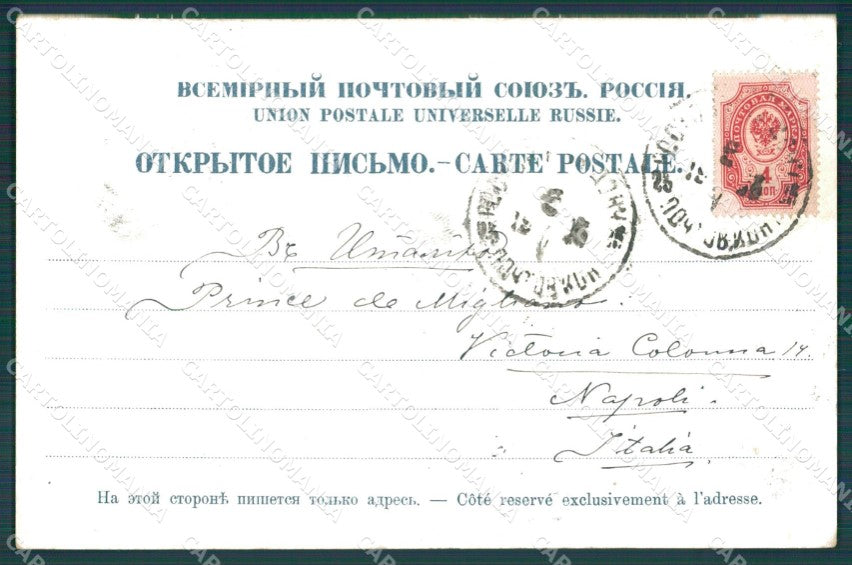 ВСЕМІРНЫЙ ПОЧТОВЫЙ СОЮЗЪ. РОССІЯ.
UNION POSTALE UNIVERSELLE RUSSIE.
ОТКРЫТОЕ ПИСЬМО.–CARTE POSTALE.
ПОЧТОВАЯ МАРКА
4
КОП.
Въ Италію
Prince de Migliano.
Victoria Colonna 14.
Napoli.
Italia
На этой сторонѣ пишется только адресъ. — Côté reservé exclusivement à l'adresse.
CARTOLINOMANIA